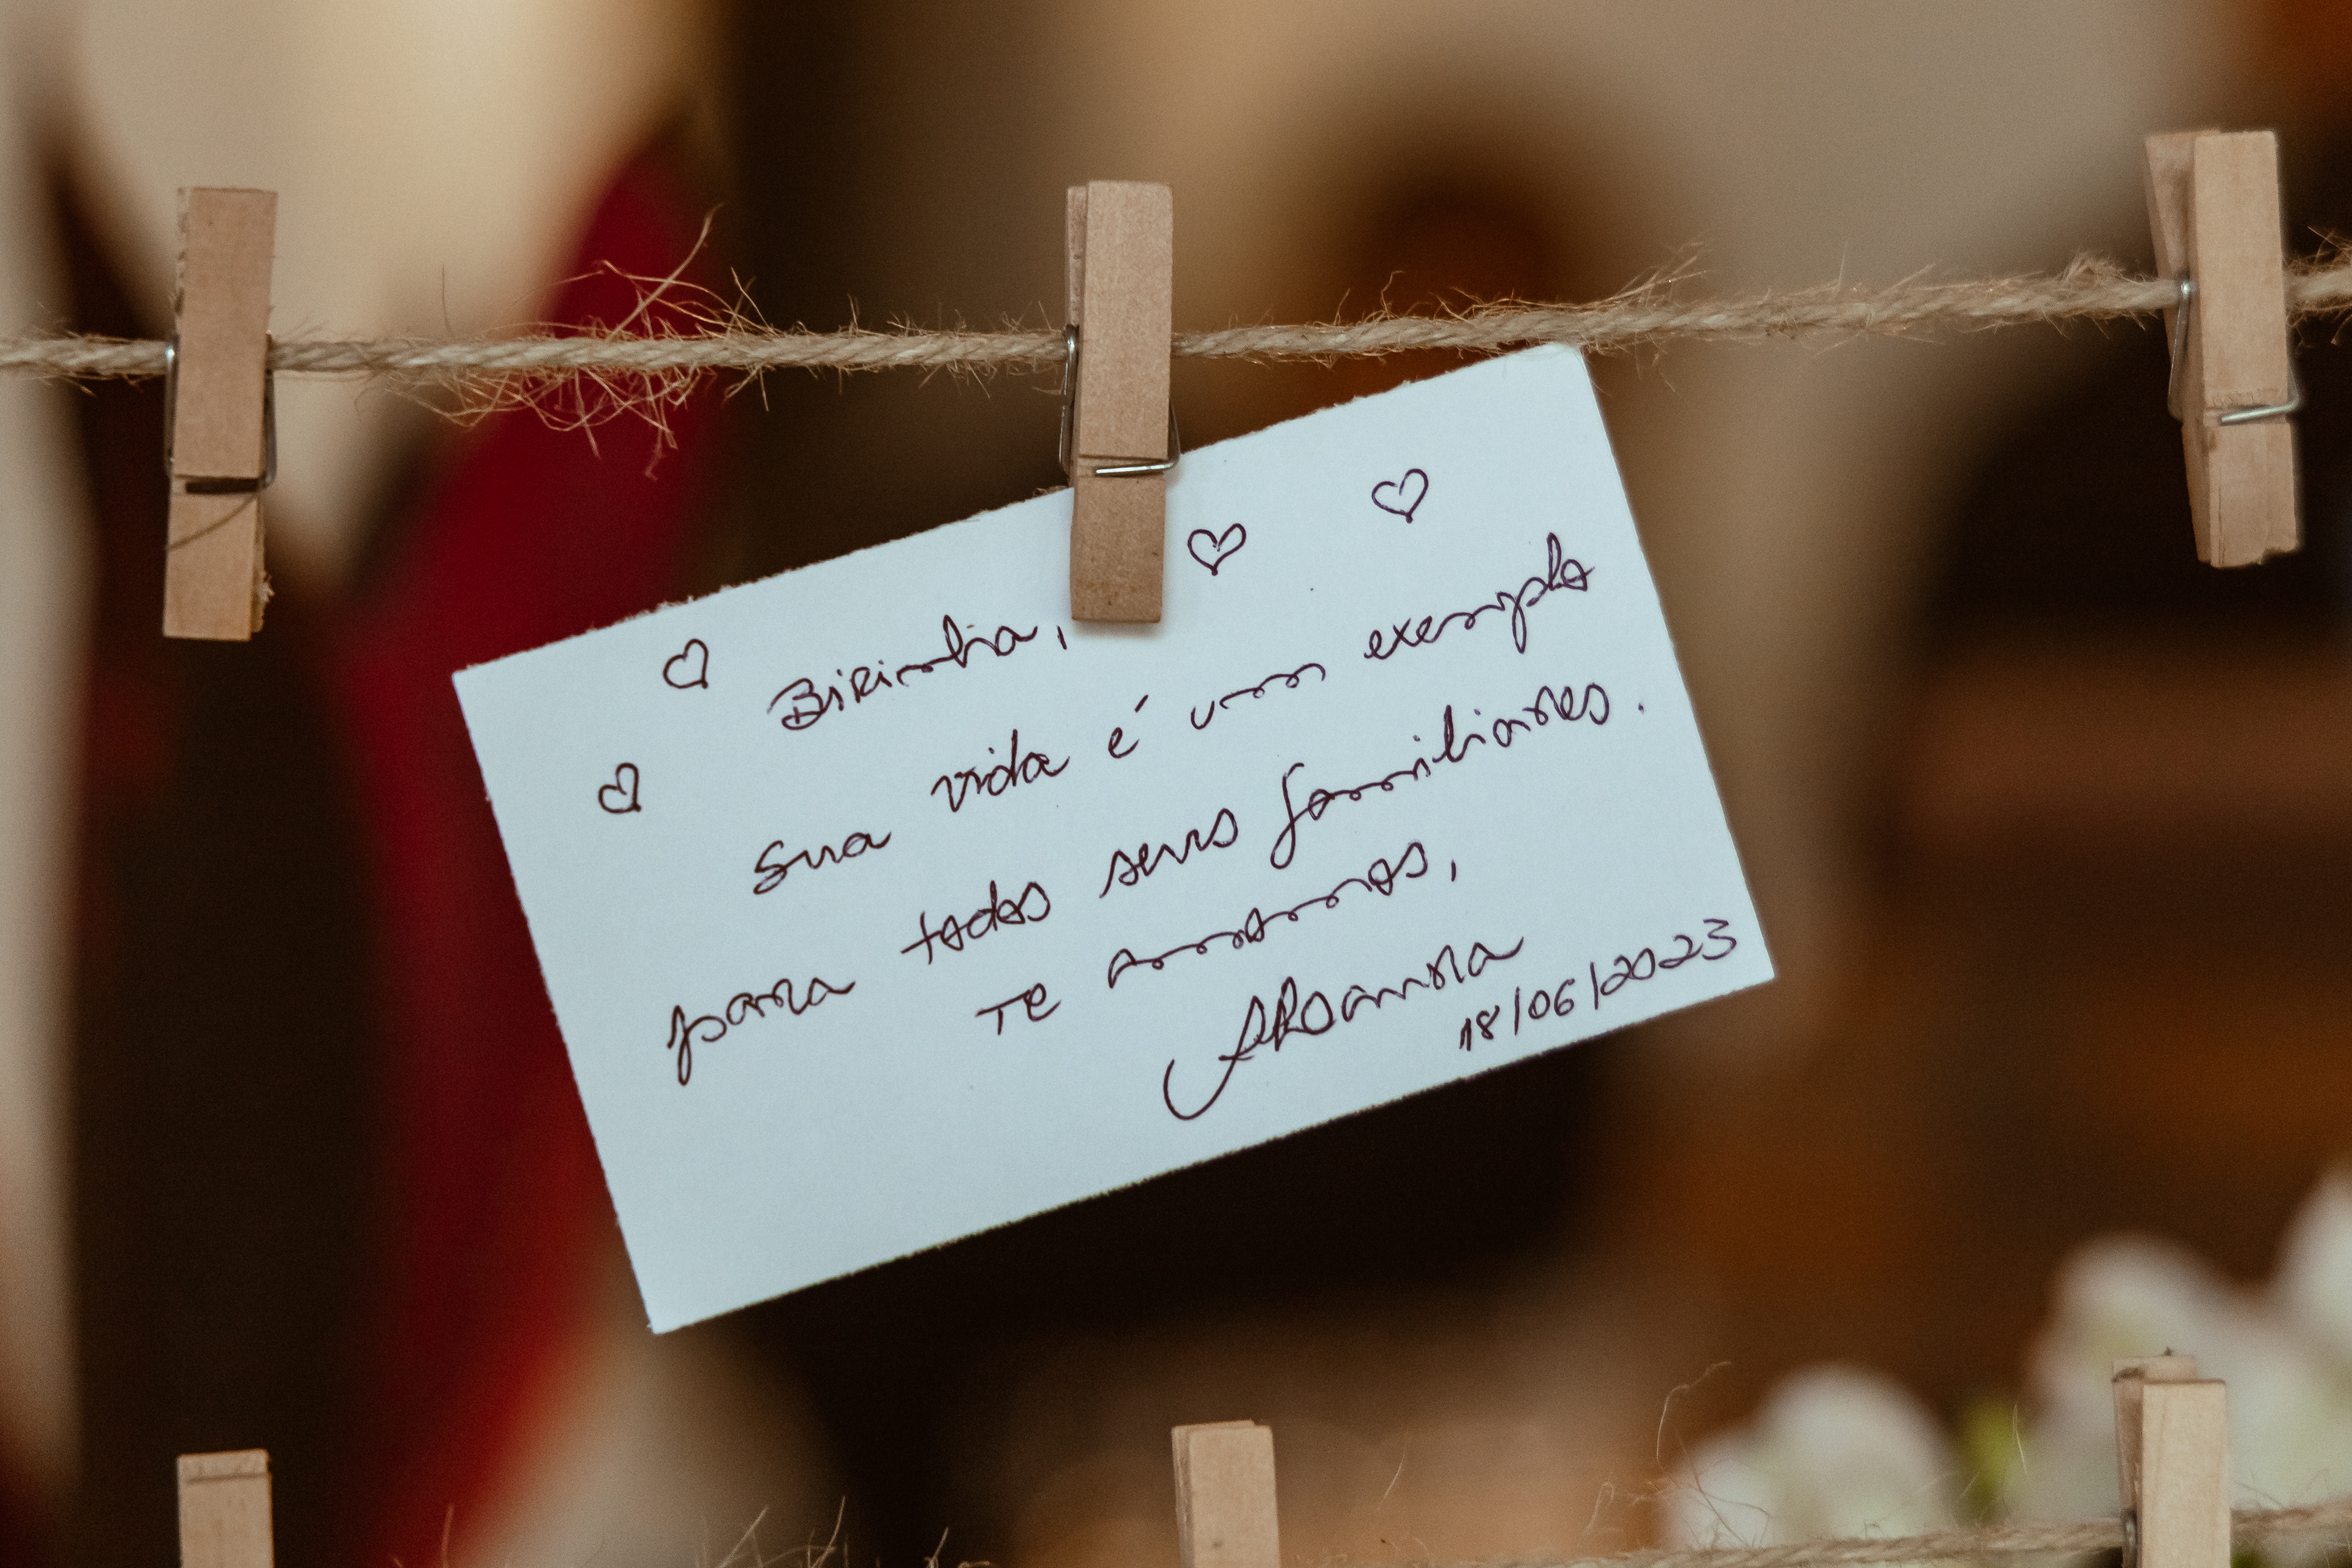 Birinha,
sua vida é um exemplo
para todos seus familiares.
Te amamos,
18/06/2023